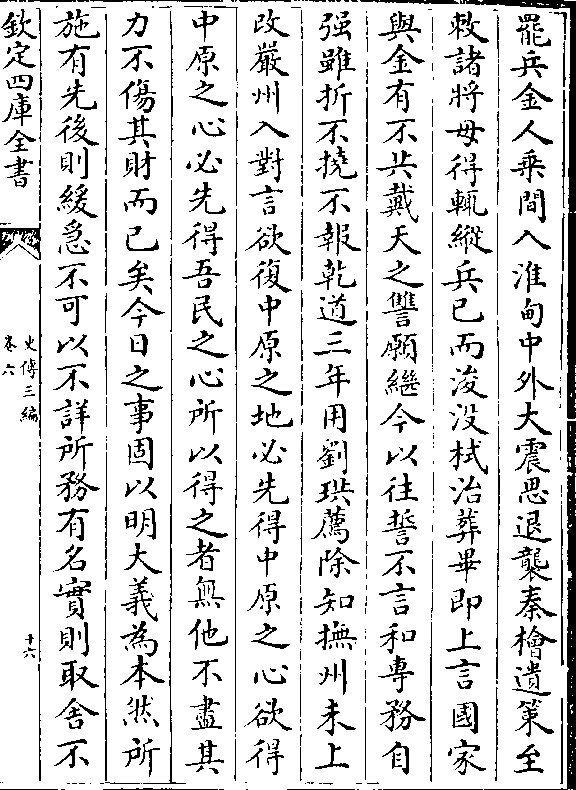 罷兵金人乗間入淮甸中外大震思退襲秦檜遺策至
敕諸將毋得輒縱兵已而浚没栻治葬畢即上言國家
與金有不共戴天之讐願繼今以往誓不言和專務自
强雖折不撓不報乾道三年用劉珙薦除知撫州未上
改嚴州入對言欲復中原之地必先得中原之心欲得
中原之心必先得吾民之心所以得之者無他不盡其
力不傷其財而已矣今日之事固以明大義為本然所
施有先後則緩急不可以不詳所務有名實則取舍不
欽定四庫全書
史傳三編
卷六
十六